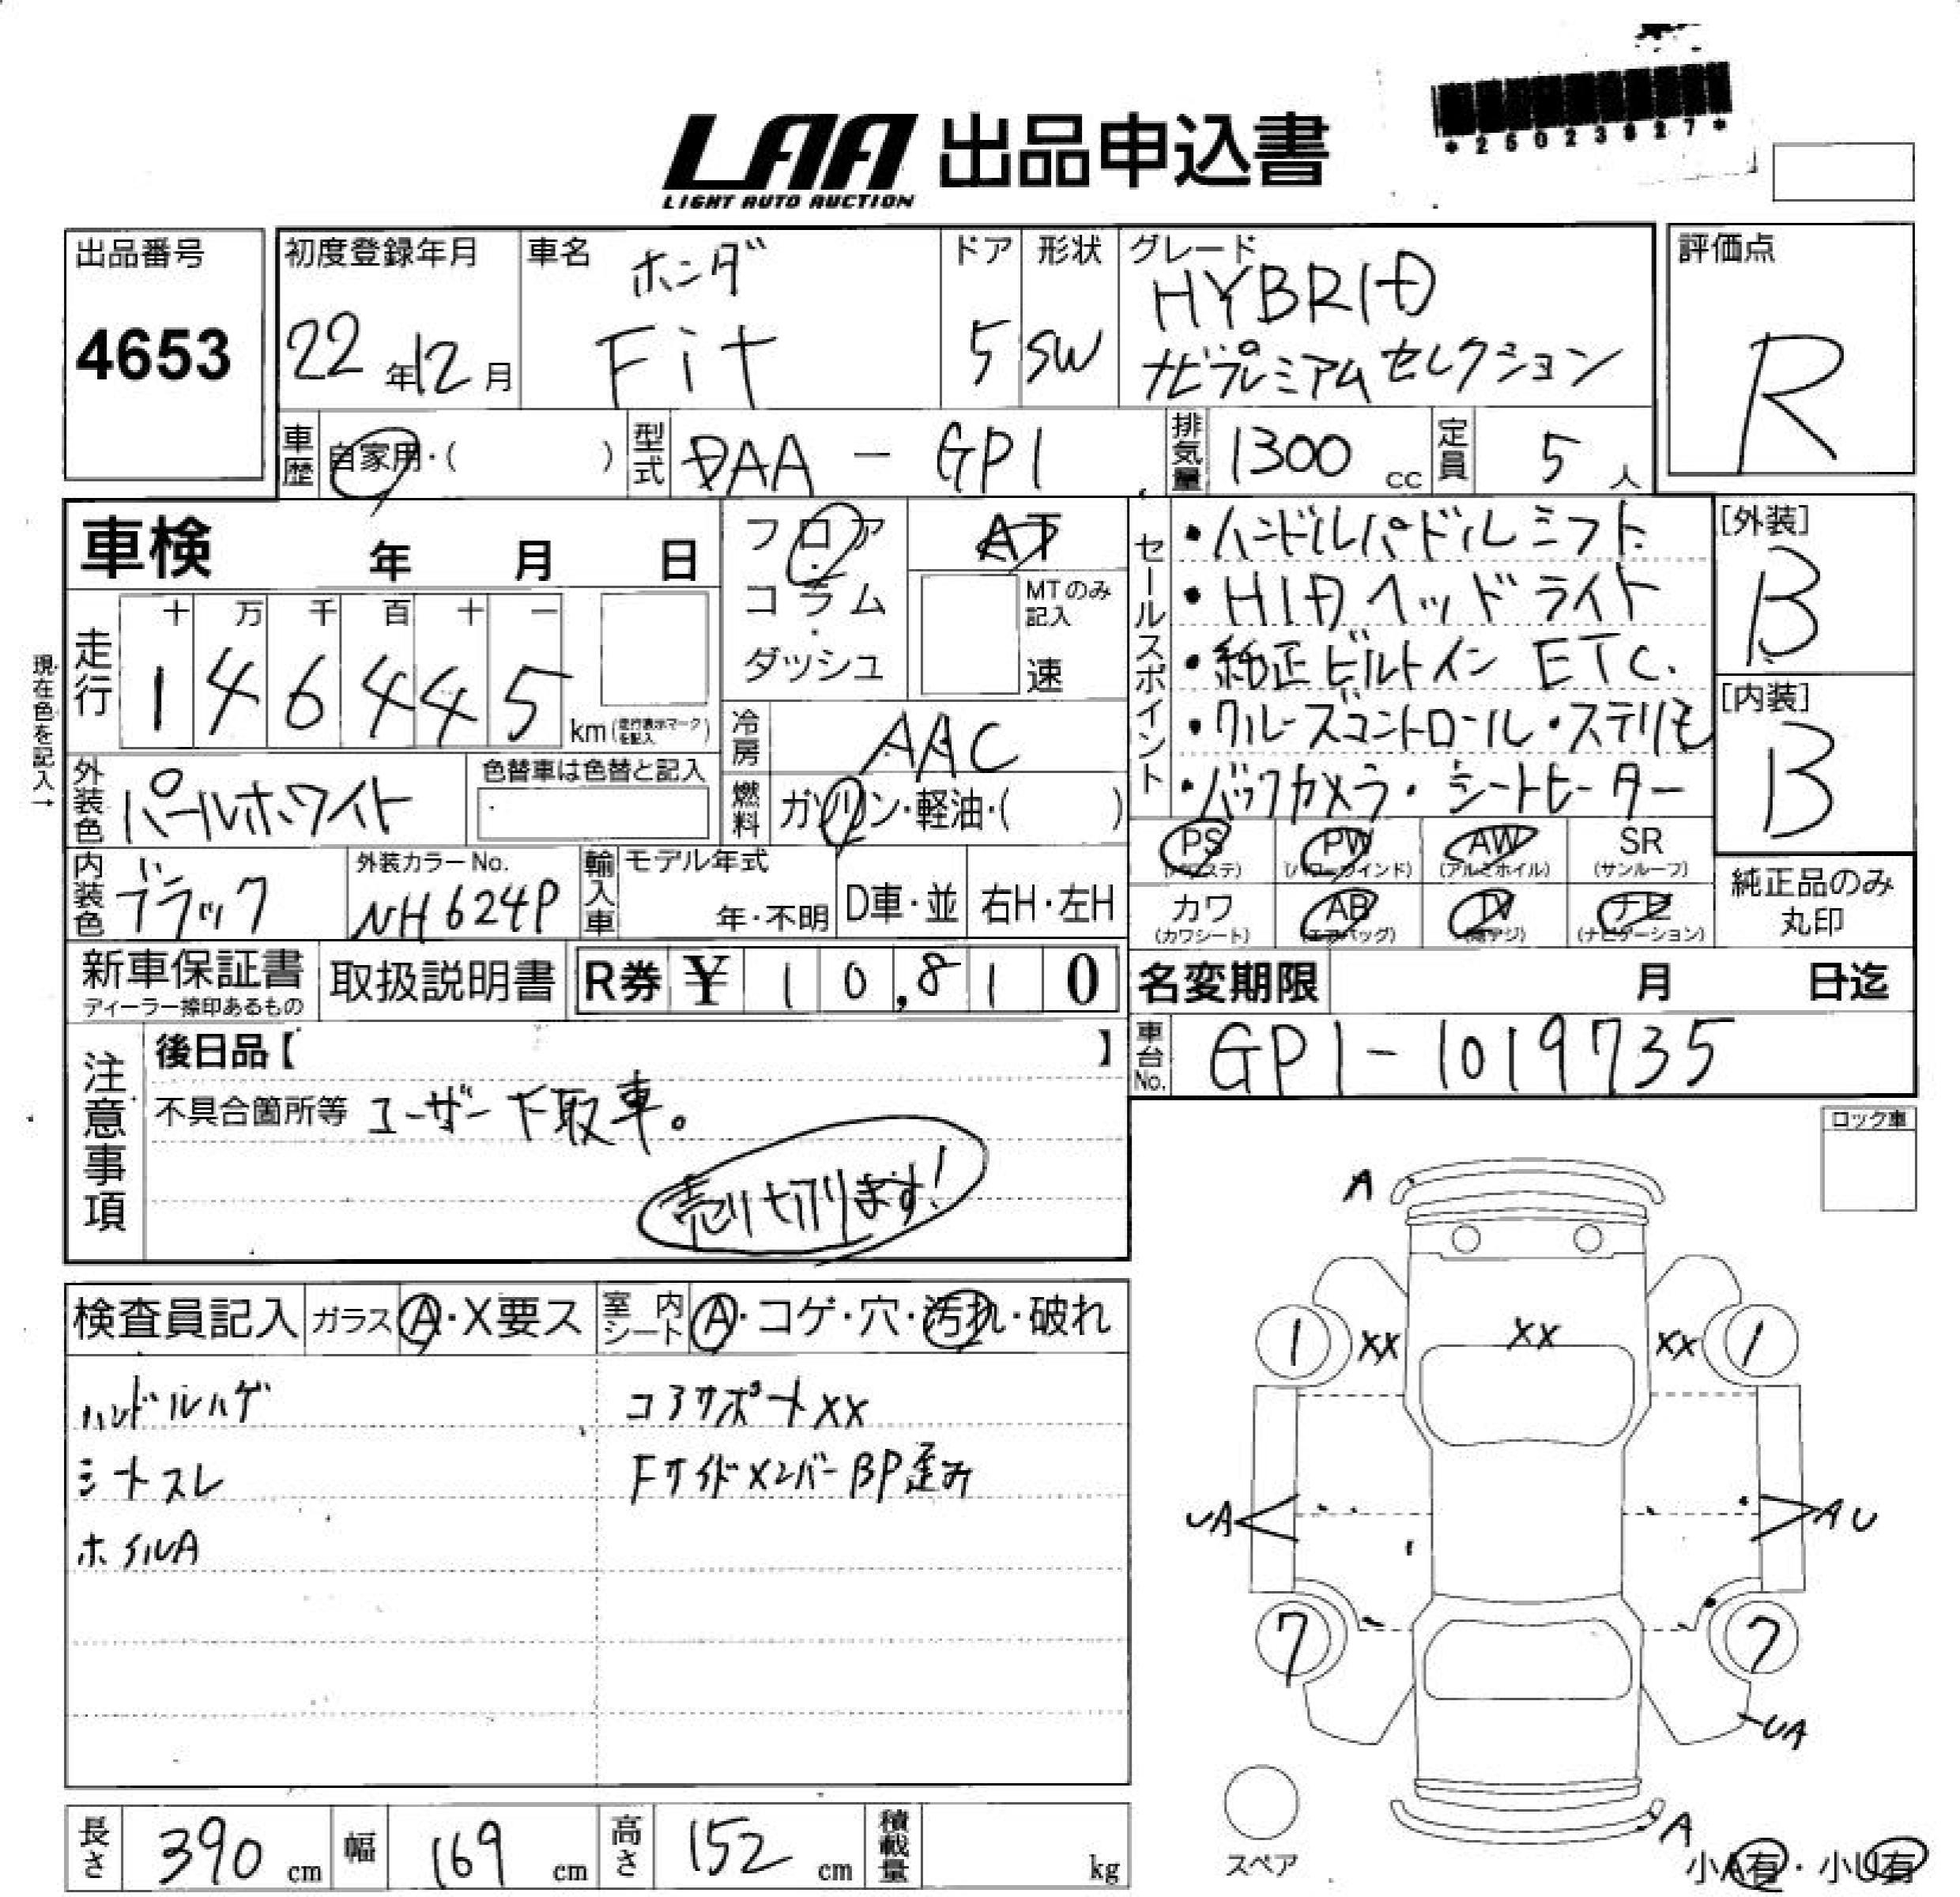 LAA 出品申込書
LIGHT AUTO AUCTION
出品番号
4653
初度登録年月
22年12月
車名
ホンダ
Fit
ドア
5
形状
SW
グレード
HYBRID
ナビプレミアムセレクション
評価点
R
車歴
自家用・( )
型式
DAA - GP1
排気量
1300 cc
定員
5 人
車検 年 月 日
フロア
・
コラム
・
ダッシュ
AT
MTのみ
記入
速
セールスポイント
・ハンドルパドルシフト
・HIDヘッドライト
・純正ビルトインETC.
・クルーズコントロール・ステリモ
・バックカメラ・シートヒーター
[外装]
B
[内装]
B
現在色を記入→
走行
十 万 千 百 十 一
1 4 6 4 4 5
km(走行表示マークを記入)
冷房
AAC
外装色
パールホワイト
色替車は色替と記入
燃料
ガソリン・軽油・( )
PS
(パワステ)
PW
(パワーウインド)
AW
(アルミホイル)
SR
(サンルーフ)
カワ
(カワシート)
AB
(エアバッグ)
TV
ナビ
(ナビゲーション)
純正品のみ
丸印
内装色
ブラック
外装カラーNo.
NH624P
輸入車
モデル年式
年・不明
D車・並
右H・左H
新車保証書
ディーラー捺印あるもの
取扱説明書
R券 ¥ 10,810
名変期限 月 日迄
車台No.
GP1-1019735
注意事項
後日品【 】
不具合箇所等 ユーザー下取車。
売り切ります!
ロック車
検査員記入
ガラス A・X要ス
室内シート A・コゲ・穴・汚れ・破れ
ハンドルハゲ
シートスレ
ホイルA
コアサポートXX
FサイドメンバーBP歪み
A
1 XX XX XX 1
UA AU
7 7
UA
A
スペア
小A有・小U有
長さ 390 cm
幅 169 cm
高さ 152 cm
積載量 kg